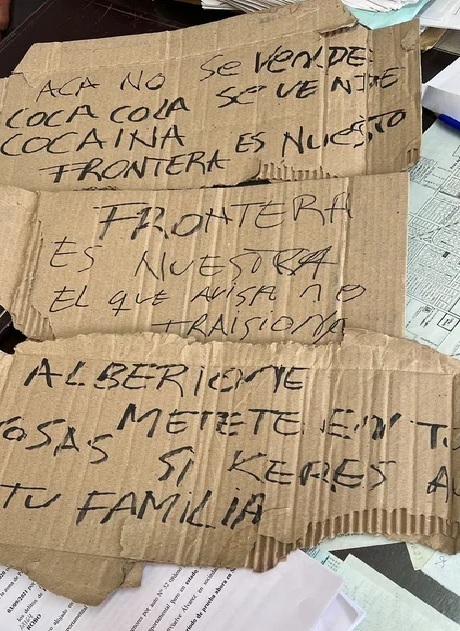 ACA NO SE VENDE
COCA COLA SE VENDE
COCAINA ES NUESTO
FRONTERA
FRONTERA
ES NUESTRA
EL QUE AVISA NO
TRAISIONA
ALBERIONE
METETE EN TU
OSAS SI KERES A
TU FAMILIA